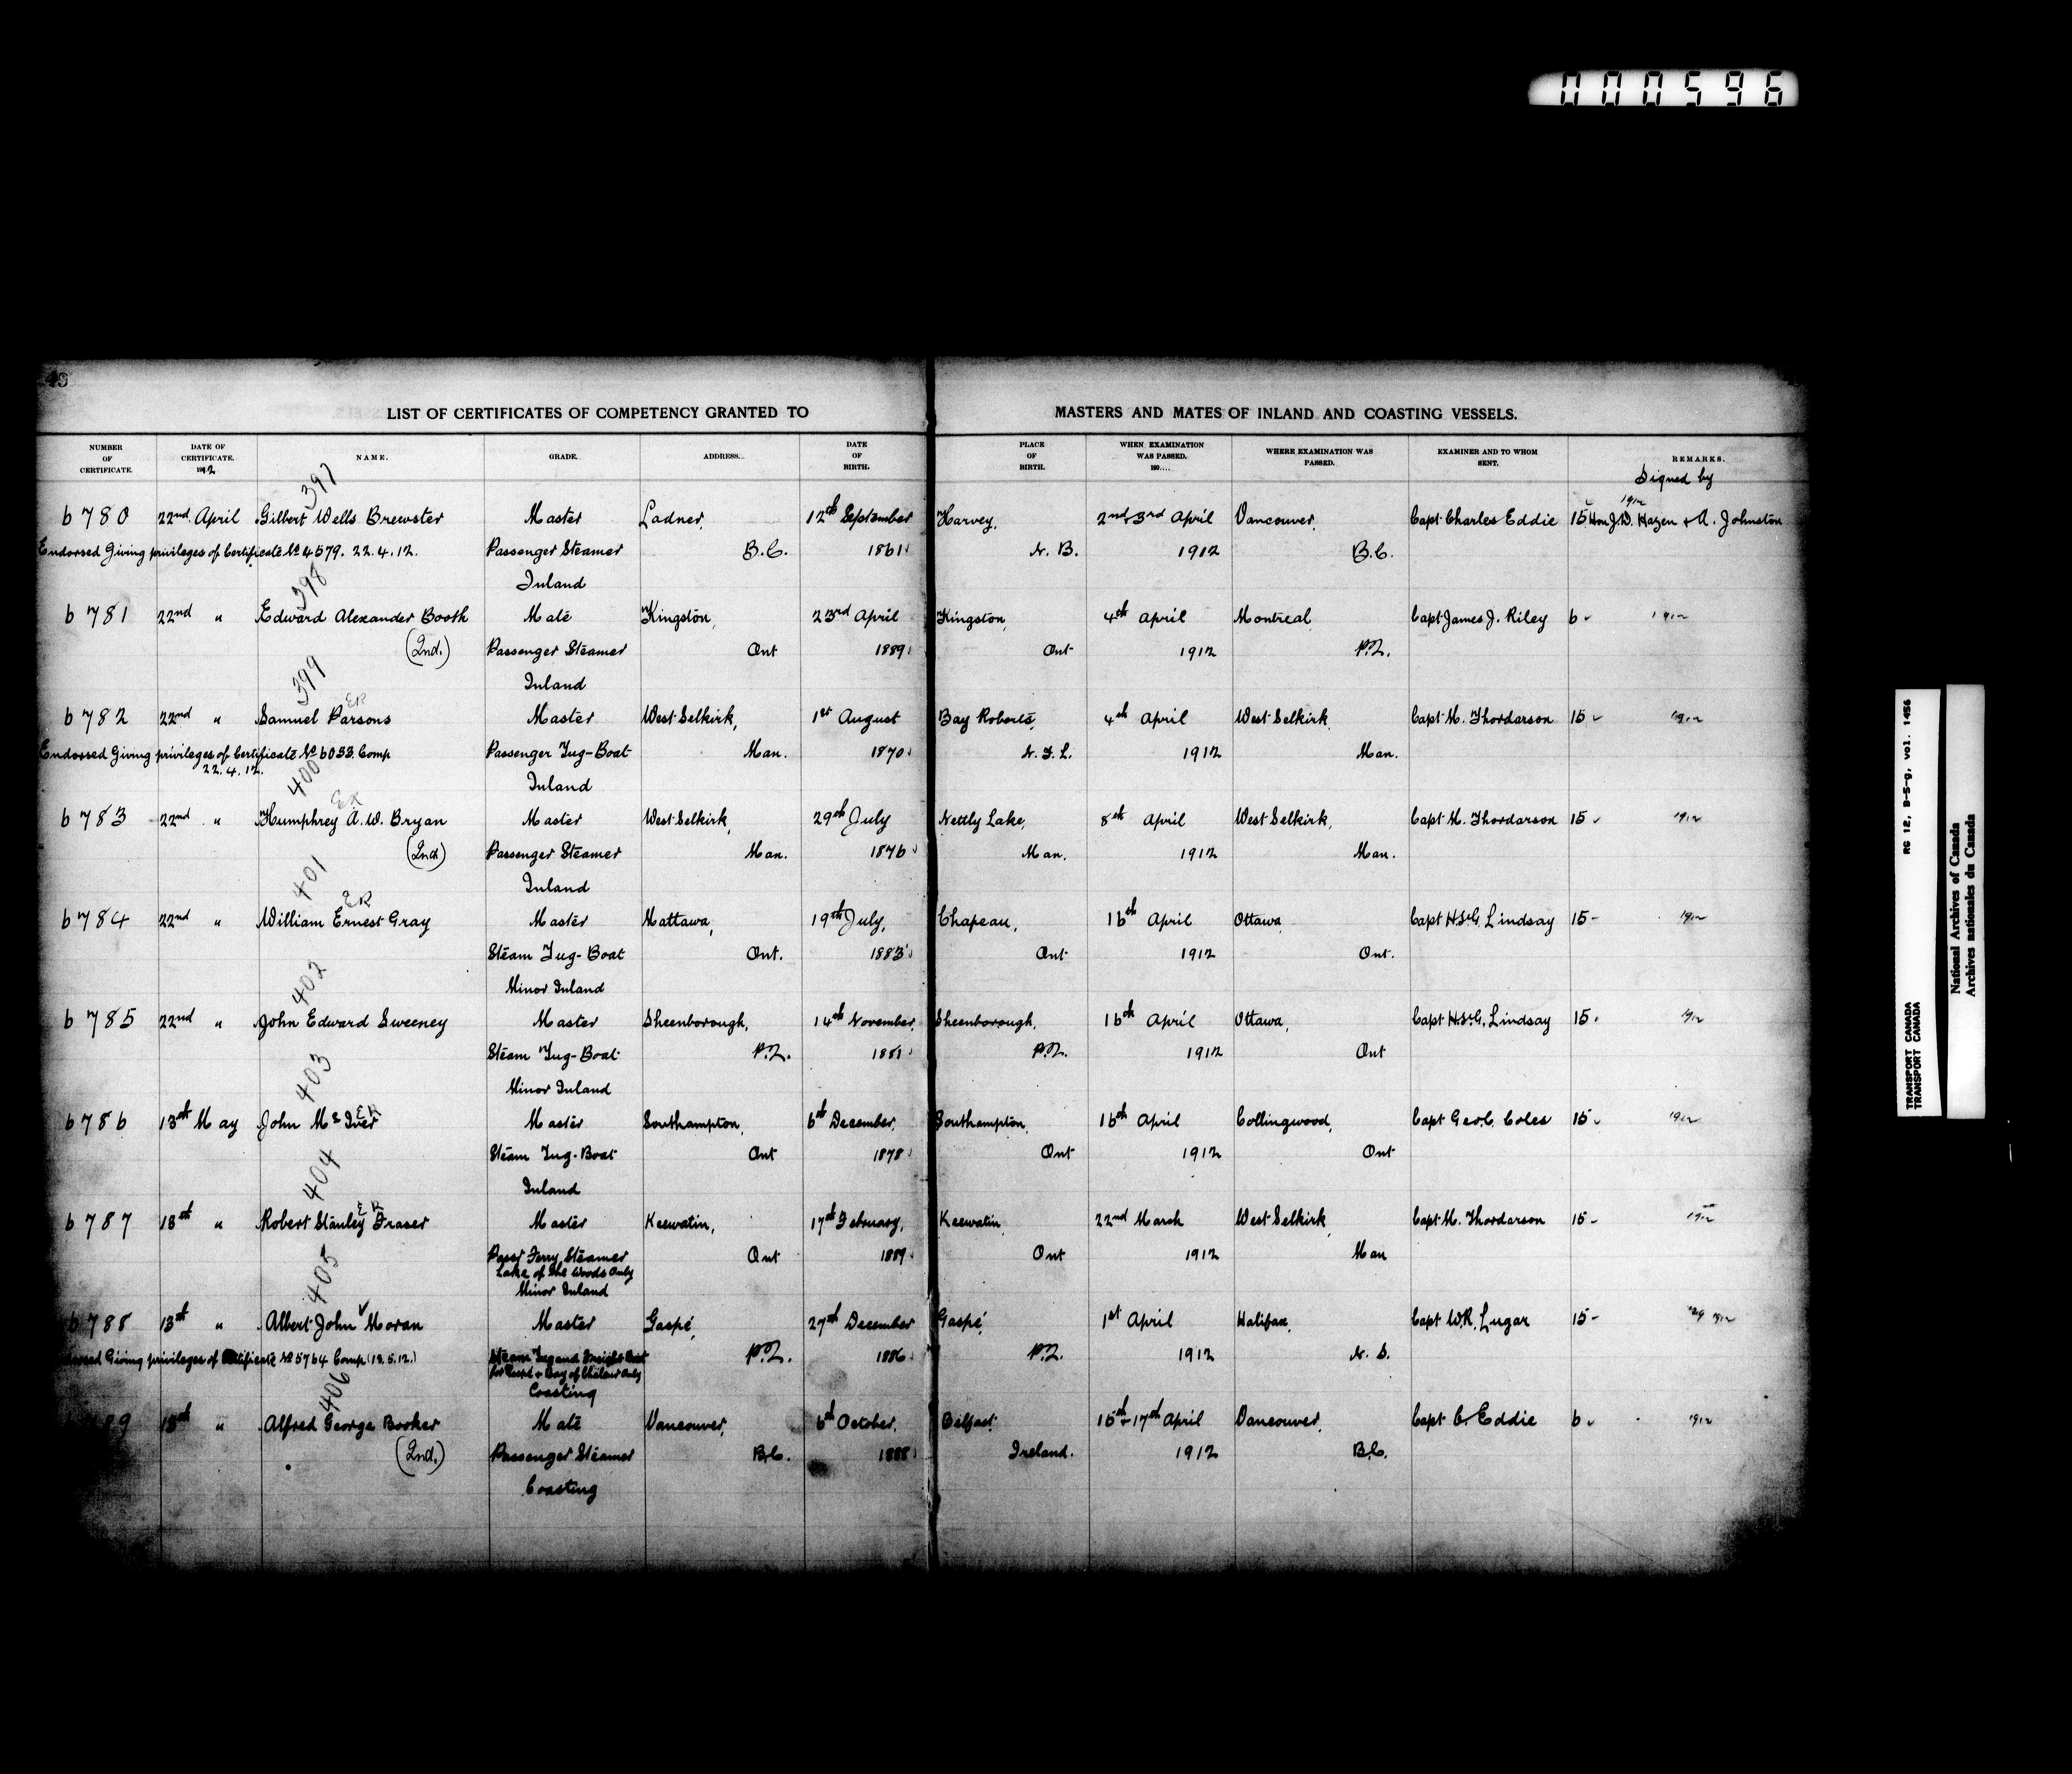 000596
49
LIST OF CERTIFICATES OF COMPETENCY GRANTED TO MASTERS AND MATES OF INLAND AND COASTING VESSELS.
NUMBER OF CERTIFICATE. DATE OF CERTIFICATE. 1912 NAME. GRADE. ADDRESS. DATE OF BIRTH. PLACE OF BIRTH. WHEN EXAMINATION WAS PASSED. 190.... WHERE EXAMINATION WAS PASSED. EXAMINER AND TO WHOM SENT. REMARKS.
Signed by
397 1912
6780 22nd April Gilbert Wells Brewster Master Ladner, 12th September Harvey, 2nd+3rd April Vancouver, Capt Charles Eddie 15 Hon J.D. Hazen + A. Johnston
Endorsed Giving privileges of Certificate No 4579. 22.4.12. Passenger Steamer B.C. 1861 N.B. 1912 B.C.
398 Inland
6781 22nd " Edward Alexander Booth Mate Kingston, 23rd April Kingston, 4th April Montreal, Capt James J. Riley 6 1912
(2nd.) Passenger Steamer Ont 1889 Ont 1912 P.Q.
399 Inland
ER
6782 22nd " Samuel Parsons Master West Selkirk, 1st August Bay Roberts, 4th April West Selkirk, Capt M. Thordarson 15 1912
Endorsed Giving privileges of Certificate No 6053 Comp Passenger Tug-Boat Man. 1870 N.F.L. 1912 Man.
22.4.12.
400 Inland
ER
6783 22nd " Humphrey A.W. Bryan Master West Selkirk, 29th July Nettly Lake, 8th April West Selkirk, Capt M. Thordarson 15 1912
(2nd) Passenger Steamer Man. 1876 Man. 1912 Man.
401 Inland
ER
6784 22nd " William Ernest Gray Master Mattawa, 19th July, Chapeau, 16th April Ottawa, Capt H.St.G. Lindsay 15- 1912
Steam Tug-Boat Ont. 1883 Ont 1912 Ont.
402 Minor Inland
6785 22nd " John Edward Sweeney Master Sheenborough, 14th November, Sheenborough, 16th April Ottawa, Capt H.St.G. Lindsay 15. 1912
Steam Tug-Boat P.Q. 1881 P.Q. 1912 Ont
403 Minor Inland
ER
6786 13th May John McIver Master Southampton, 6th December, Southampton, 16th April Collingwood, Capt Geo.C. Coles 15 1912
Steam Tug-Boat Ont 1878 Ont 1912 Ont
404 Inland
ER
6787 13th " Robert Stanley Fraser Master Keewatin, 17th February, Keewatin, 22nd March West Selkirk, Capt M. Thordarson 15- 1912
Passr Ferry Steamer Ont 1889 Ont 1912 Man
Lake of the Woods Only
405 Minor Inland
6788 13th " Albert John Moran Master Gaspé, 27th December Gaspé, 1st April Halifax, Capt W.R. Lugar 15- 1912
Giving privileges of Certificate No 5764 Comp (13.5.12.) Steam Tug and Freight Boat P.Q. 1886 P.Q. 1912 N.S.
for Gaspé + Bay of Chaleur Only
406 Coasting
89 13th " Alfred George Booker Mate Vancouver, 6th October, Belfast, 16th+17th April Vancouver, Capt C. Eddie 6 1912
(2nd.) Passenger Steamer B.C. 1888 Ireland. 1912 B.C.
Coasting
RG 12, B-5-g, vol. 1456
TRANSPORT CANADA
TRANSPORT CANADA
National Archives of Canada
Archives nationales du Canada